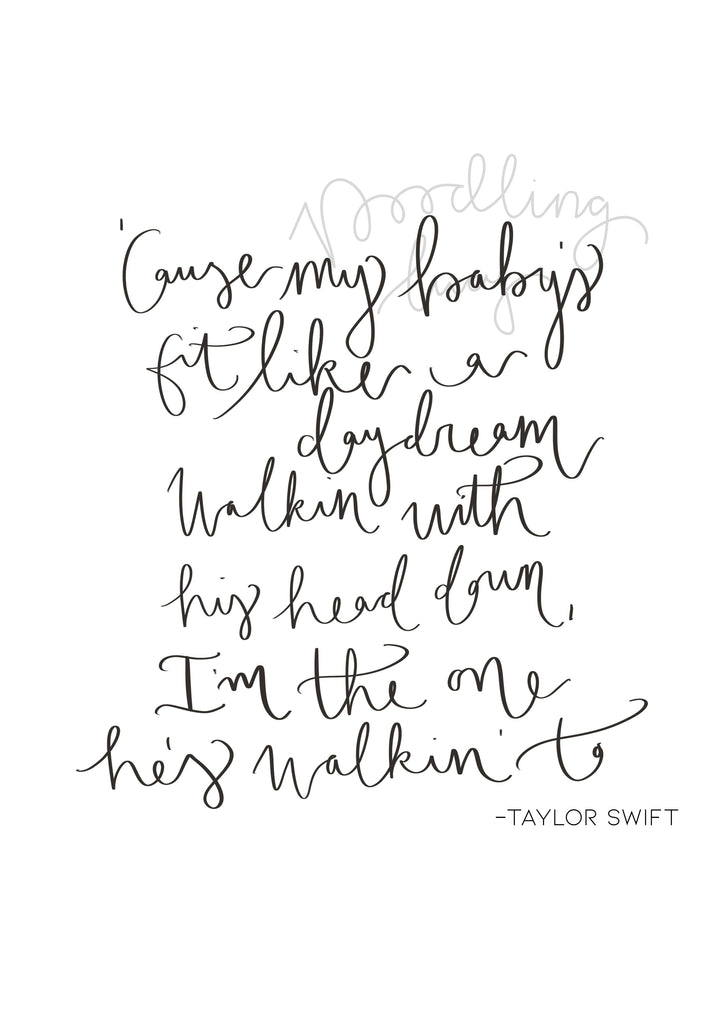 Poodling
bugs
'Cause my baby's
fit like a
daydream
Walkin with
his head down,
I'm the one
he's walkin' to
-TAYLOR SWIFT